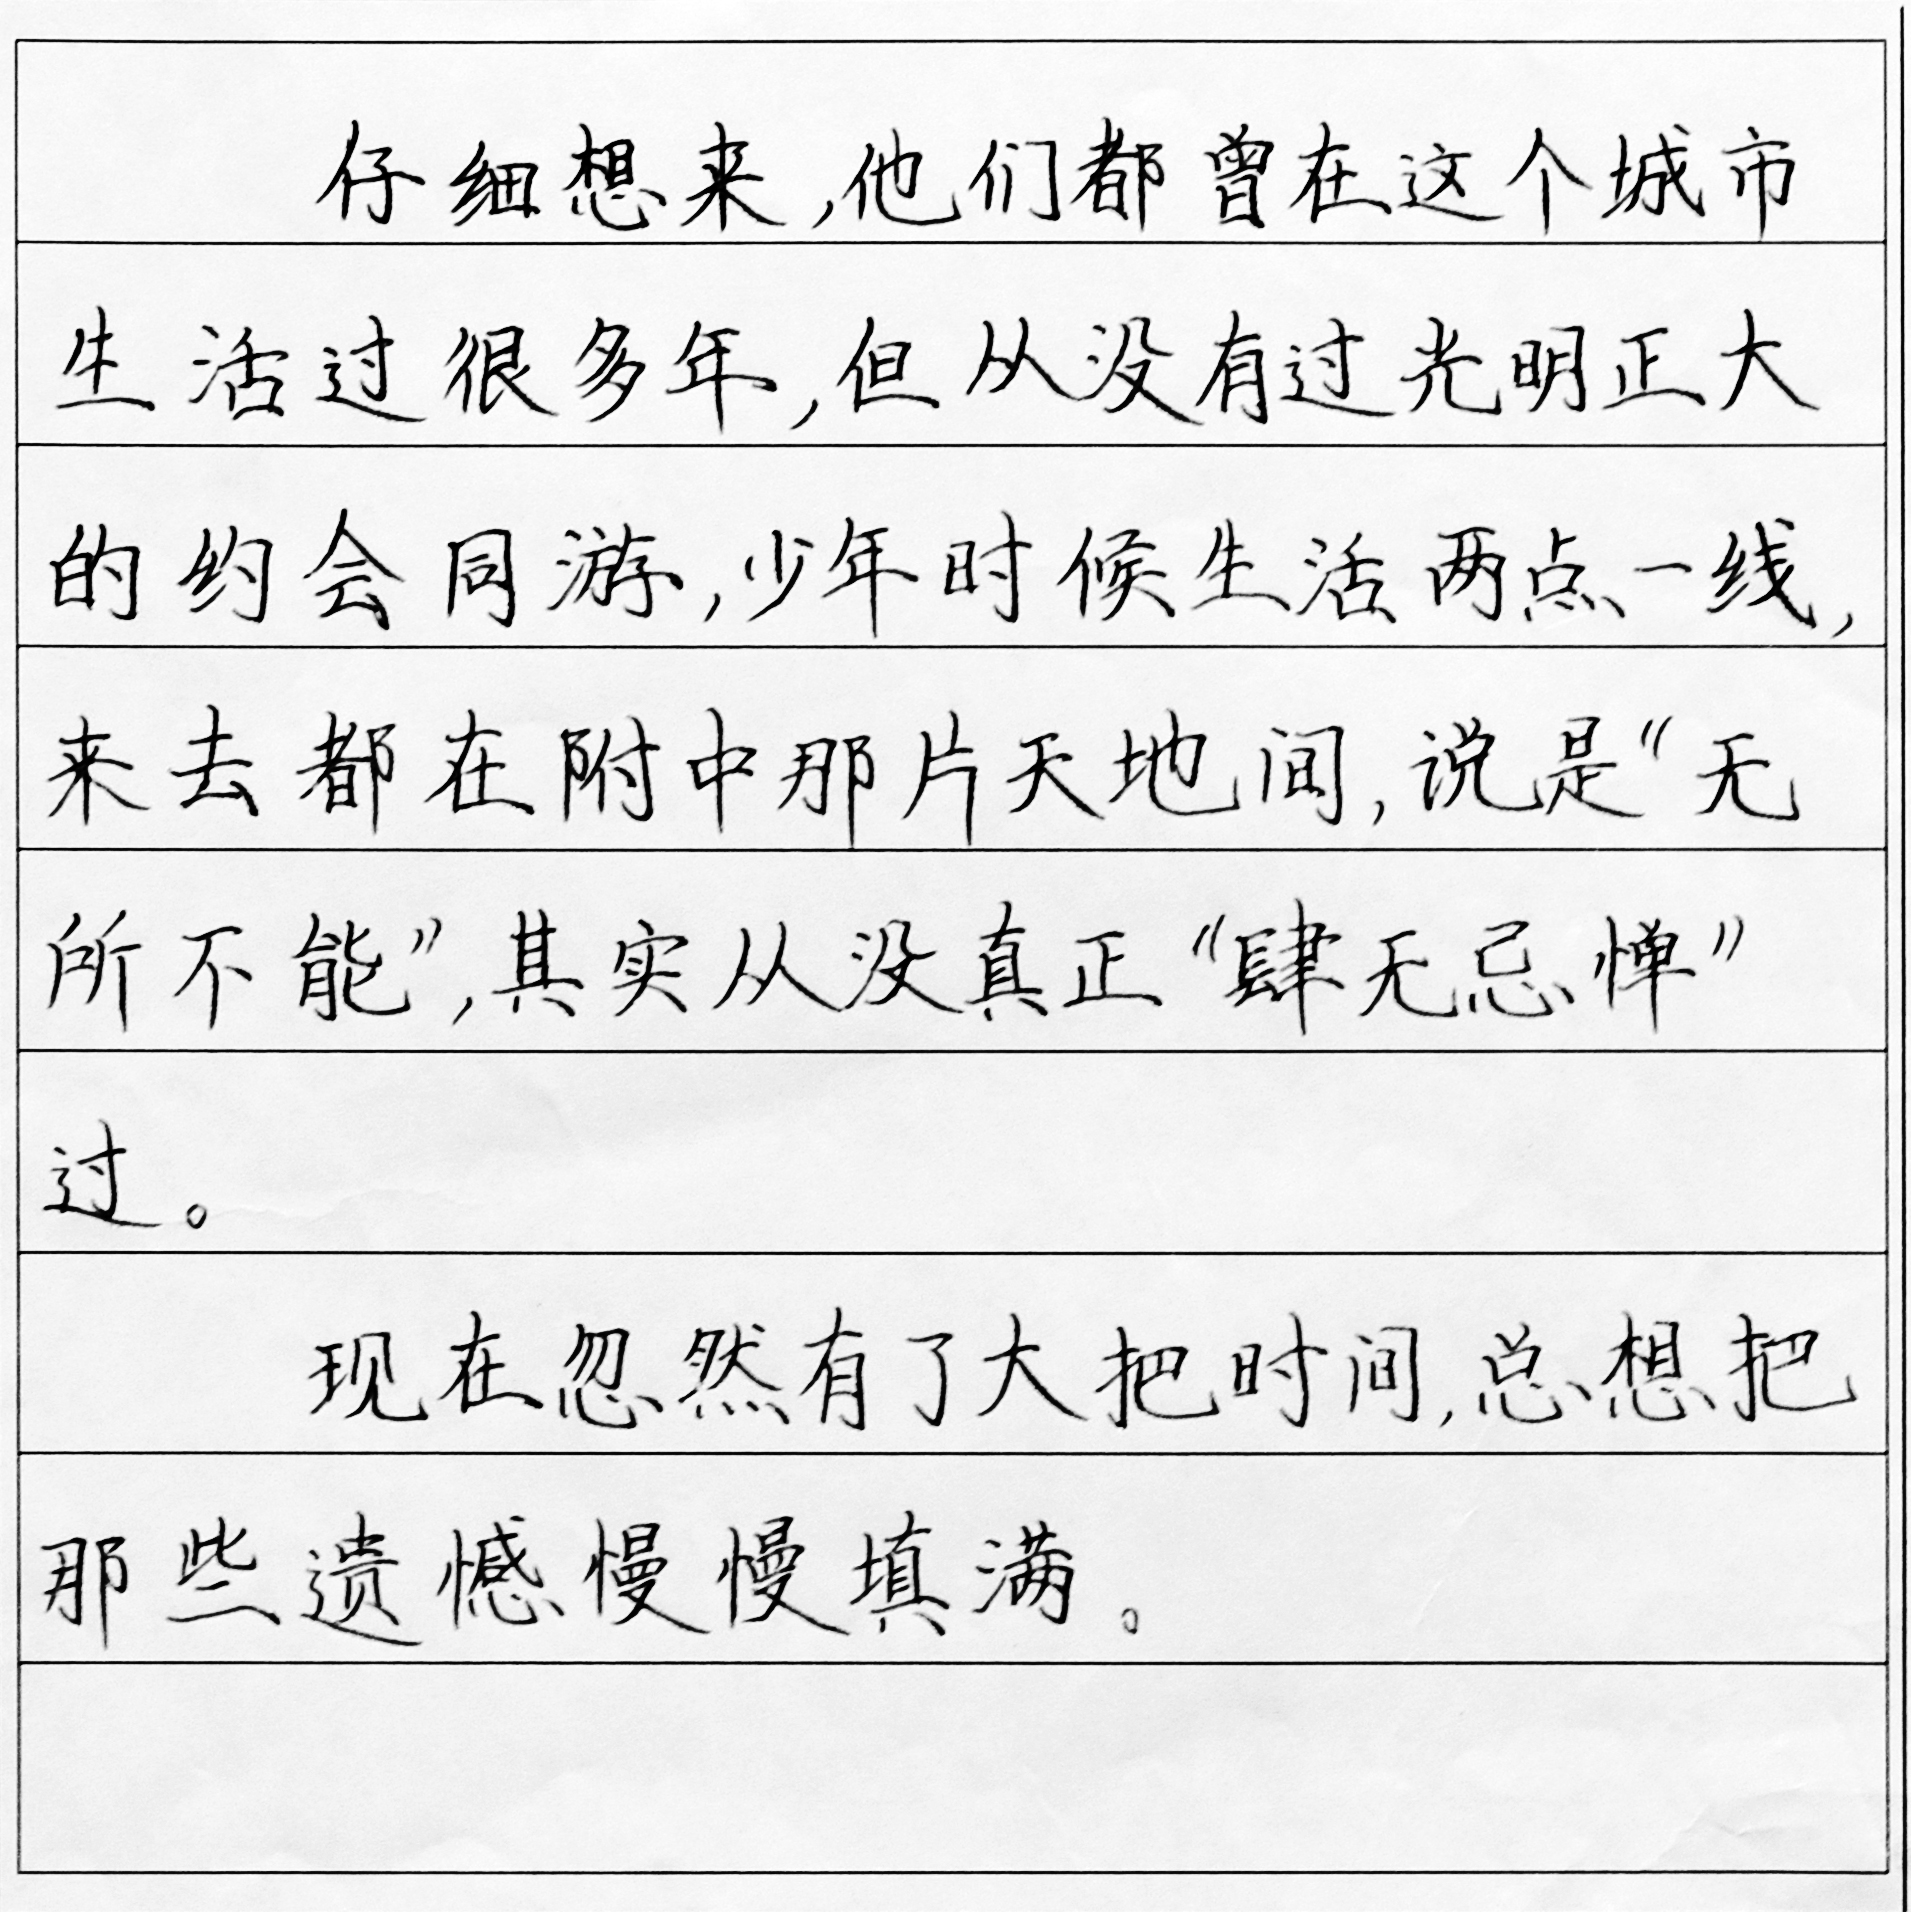 仔细想来,他们都曾在这个城市
生活过很多年,但从没有过光明正大
的约会同游,少年时候生活两点一线,
来去都在附中那片天地间,说是“无
所不能”,其实从没真正“肆无忌惮”
过。
现在忽然有了大把时间,总想把
那些遗憾慢慢填满。